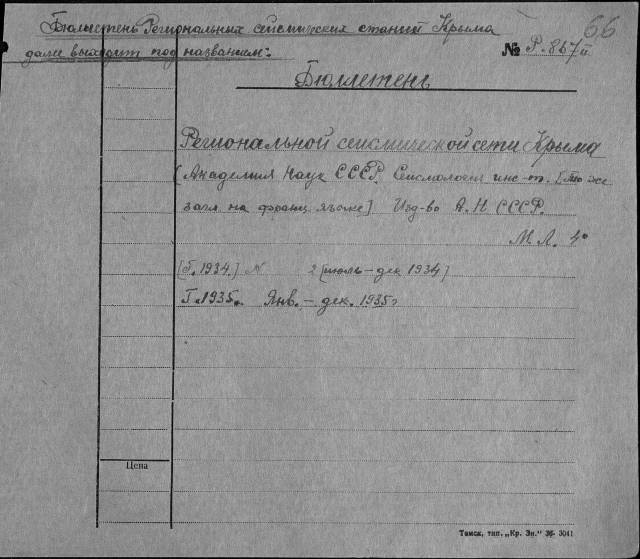 Бюллетень Региональных сейсмических станций Крыма
далее выходит под названием:
66
№ Р-867й
Бюллетень
Региональной сейсмической сети Крыма
(Академия Наук СССР. Сейсмология инс-т. [То же
загл на франц языке] Изд-во А.Н СССР.
М. Л. 4°
[Г. 1934.] N 2 [июль-дек 1934]
Г. 1935. Янв. - дек. 1935г
Цена
Томск, тип. „Кр. Зн." 36- 3041